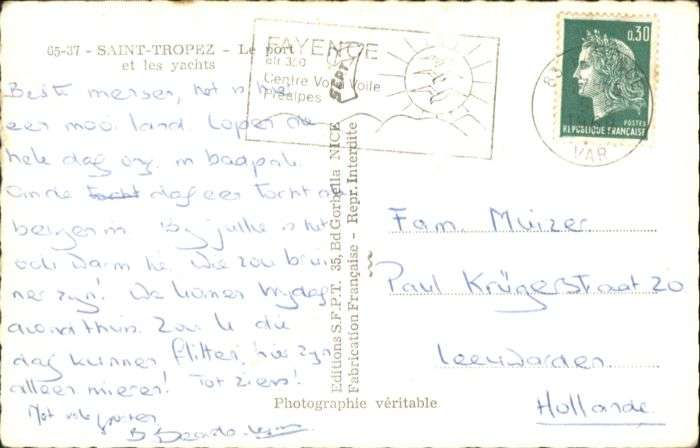 65-37 - SAINT-TROPEZ - Le port
et les yachts
FAYENCE
alt 350
Centre Vol à Voile
Préalpes
0,30
POSTES
REPUBLIQUE FRANÇAISE
VAR
Beste mensen, het is hier
een mooi land. Lopen de
hele dag in badpak.
Om de dag een tocht de
bergen in. Bij jullie is het
ook warm hè. Wie zou bruiner zijn! We komen vrijdag
avond thuis. Zou ik die
dag kunnen flitten, hier zijn
alleen mieren! Tot ziens!
Met vele groeten
Fam. Muizer
Paul Krügerstraat 20
Leeuwarden
Hollande
Editions S.F.P.T. 35, Bd Gorbella NICE
Fabrication Française - Repr. Interdite
Photographie véritable